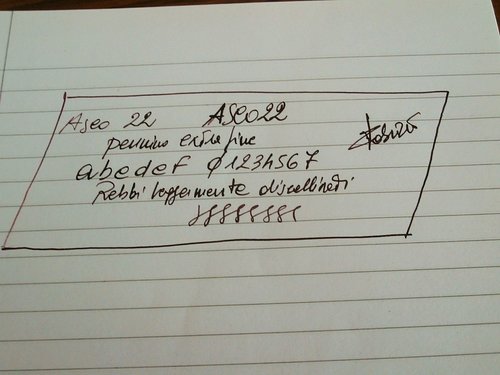 Aseo 22 ASEO22
pennino extra fine
abcdef 01234567
Rebbi leggermente disallineati